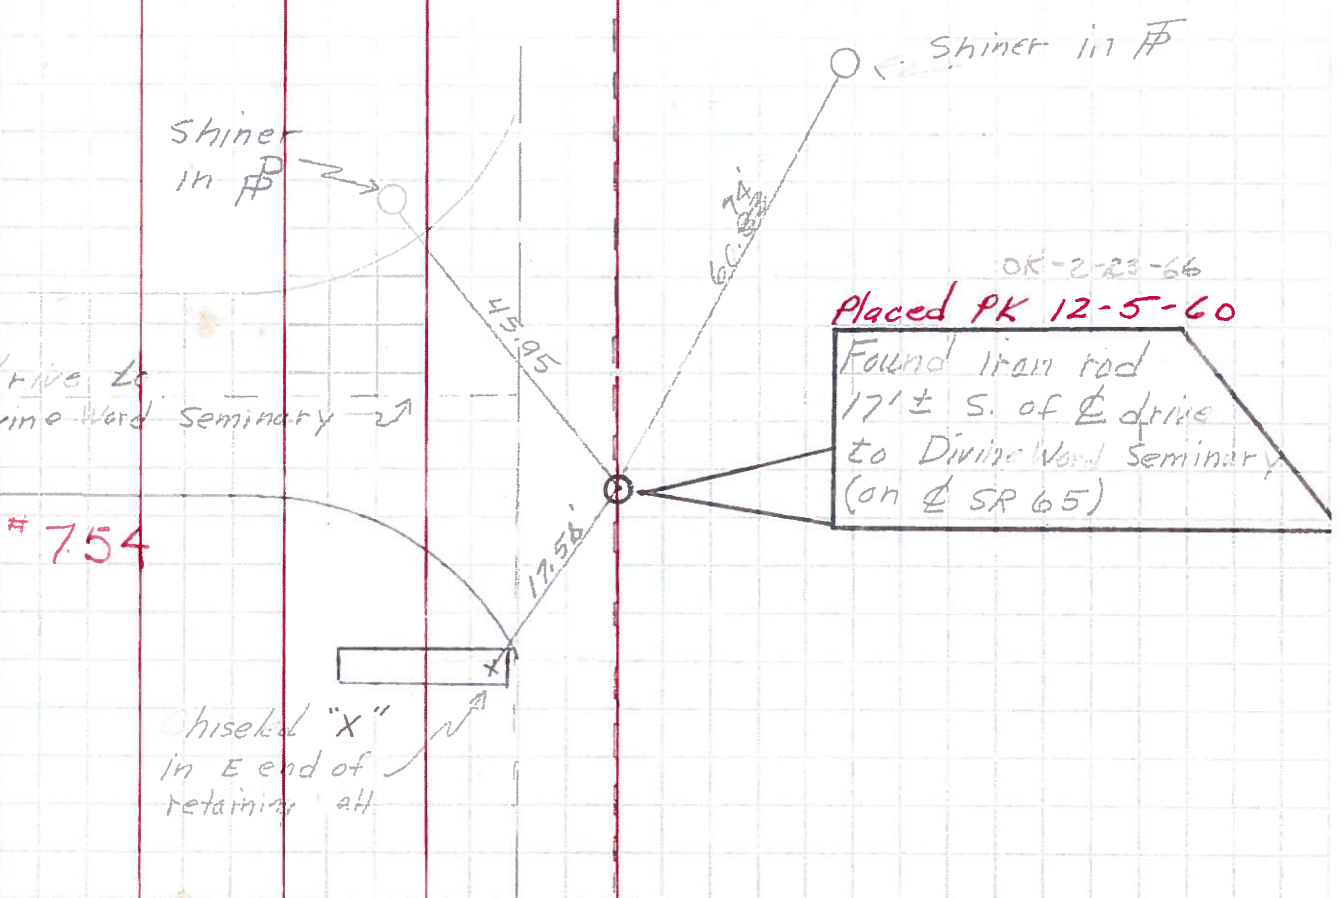 Shiner in TP
Shiner
in PP
45.95
74'
OK-2-23-66
Placed PK 12-5-60
Found iron rod
17'± S. of ℄ drive
to Divine Word Seminary
(on ℄ SR 65)
rive to
vine Word Seminary
# 754
17.58'
x
hiseled "X"
in E end of
retainin all